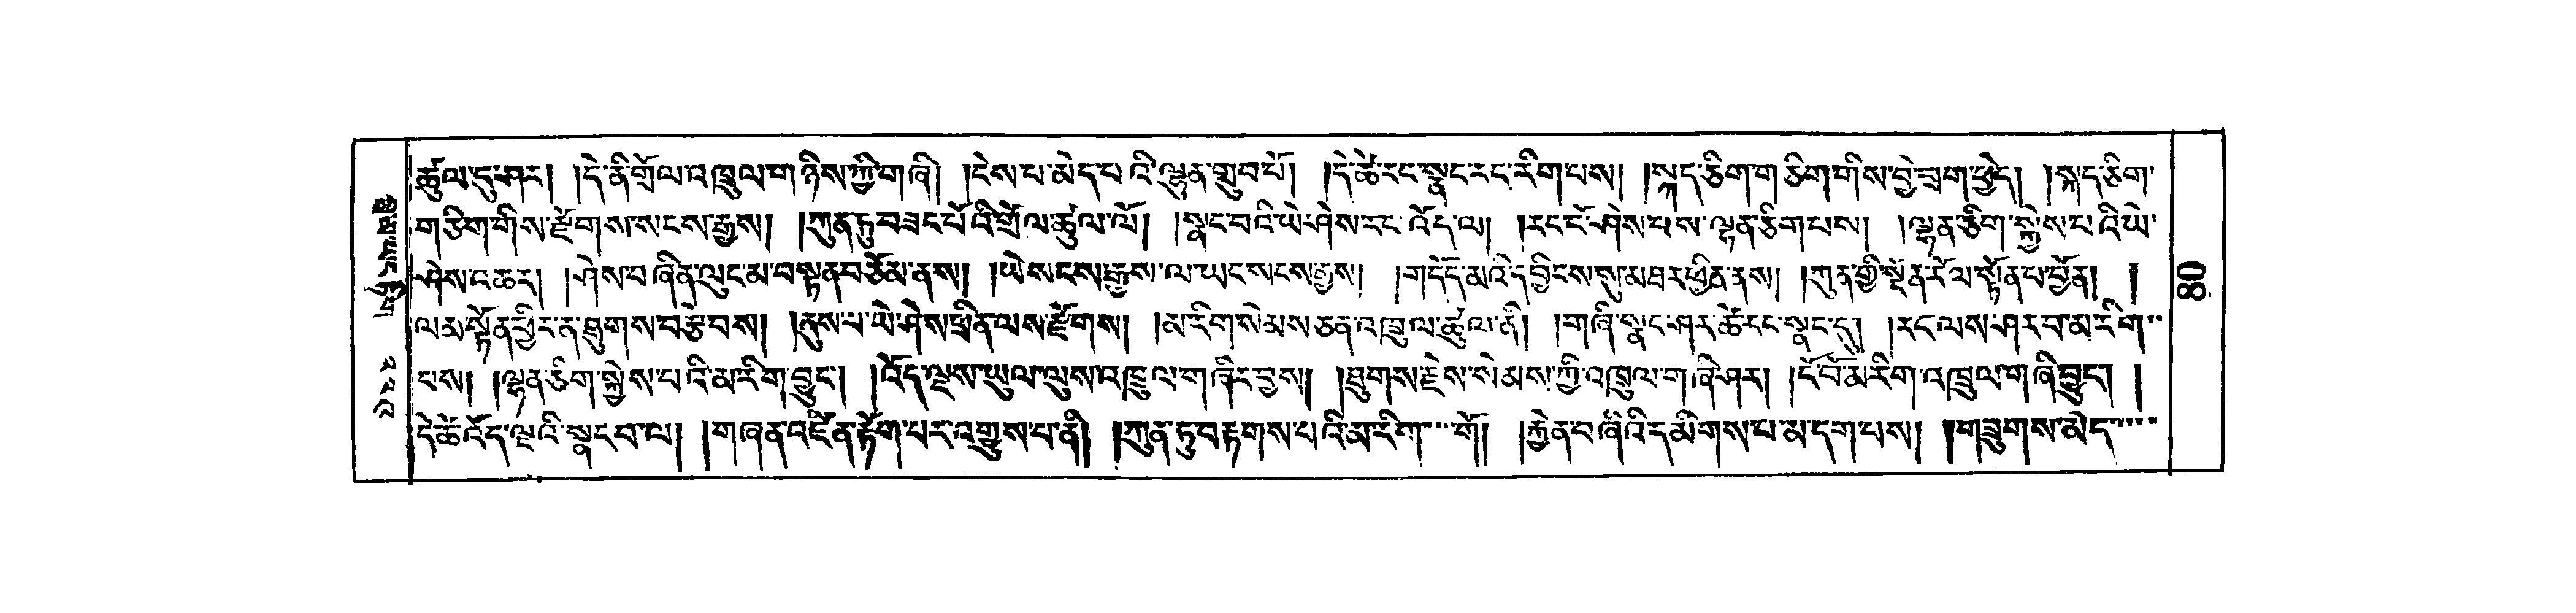 ཚུལ་དུ་ཤར། །དེ་ནི་གྲོལ་འཁྲུལ་གཉིས་ཀྱི་གཞི། །ངེས་པ་མེད་པའི་ལྷུན་གྲུབ་པོ། །དེ་ཚེ་རང་སྣང་རང་རིག་པས། །སྐད་ཅིག་གཅིག་གིས་བྱེ་བྲག་ཕྱེད། །སྐད་ཅིག་
གཅིག་གིས་རྫོགས་སངས་རྒྱས། །ཀུན་ཏུ་བཟང་པོའི་གྲོལ་ཚུལ་ལོ། །སྣང་བའི་ཡེ་ཤེས་རང་འོད་ལ། །རང་ངོ་ཤེས་པས་ལྷན་ཅིག་པས། །ལྷན་ཅིག་སྐྱེས་པའི་ཡེ་
ཤེས་འཆར། །ཤེས་བཞིན་ལུང་མ་བསྟན་བཅོམ་ནས། །ཡེ་སངས་རྒྱས་ལ་ཡང་སངས་རྒྱས། །གདོད་མའི་དབྱིངས་སུ་མཐར་ཕྱིན་ནས། །ཀུན་གྱི་སྔོན་རོལ་སྟོན་པ་བྱོན། །
ལམ་སྟོན་ཕྱིར་ན་ཐུགས་བརྩེ་བས། །ནུས་པ་ཡེ་ཤེས་ཕྲིན་ལས་རྫོགས། །མ་རིག་སེམས་ཅན་འཁྲུལ་ཚུལ་ནི། །གཞི་སྣང་ཤར་ཚེ་རང་སྣང་དུ། །རང་ལས་ཤར་བ་མ་རིག་
པས། །ལྷན་ཅིག་སྐྱེས་པའི་མ་རིག་བྱུང་། །འོད་ལྔས་ཡུལ་ལུས་འཁྲུལ་གཞིར་བྱས། །ཐུགས་རྗེས་སེམས་ཀྱི་འཁྲུལ་གཞི་ཤར། །ངོ་བོ་མ་རིག་འཁྲུལ་གཞི་བྱུང་། །
དེ་ཚེ་འོད་ལྔའི་སྣང་བ་ལ། །གཞན་འཛིན་རྟོག་པར་འགྱུས་པ་ནི། །ཀུན་ཏུ་བརྟགས་པའི་མ་རིག་གོ། །རྐྱེན་བཞིའི་དམིགས་པ་མ་དག་པས། །གཟུགས་མེད་
༠
༤